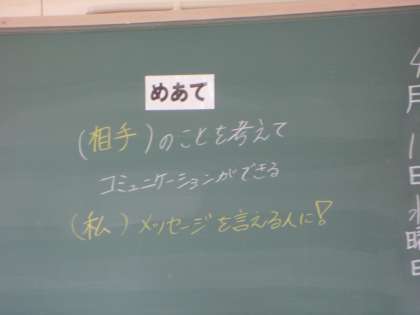 めあて
(相手)のことを考えて
コミュニケーションができる
(私)メッセージを言える人に!
月
日
水
曜
日